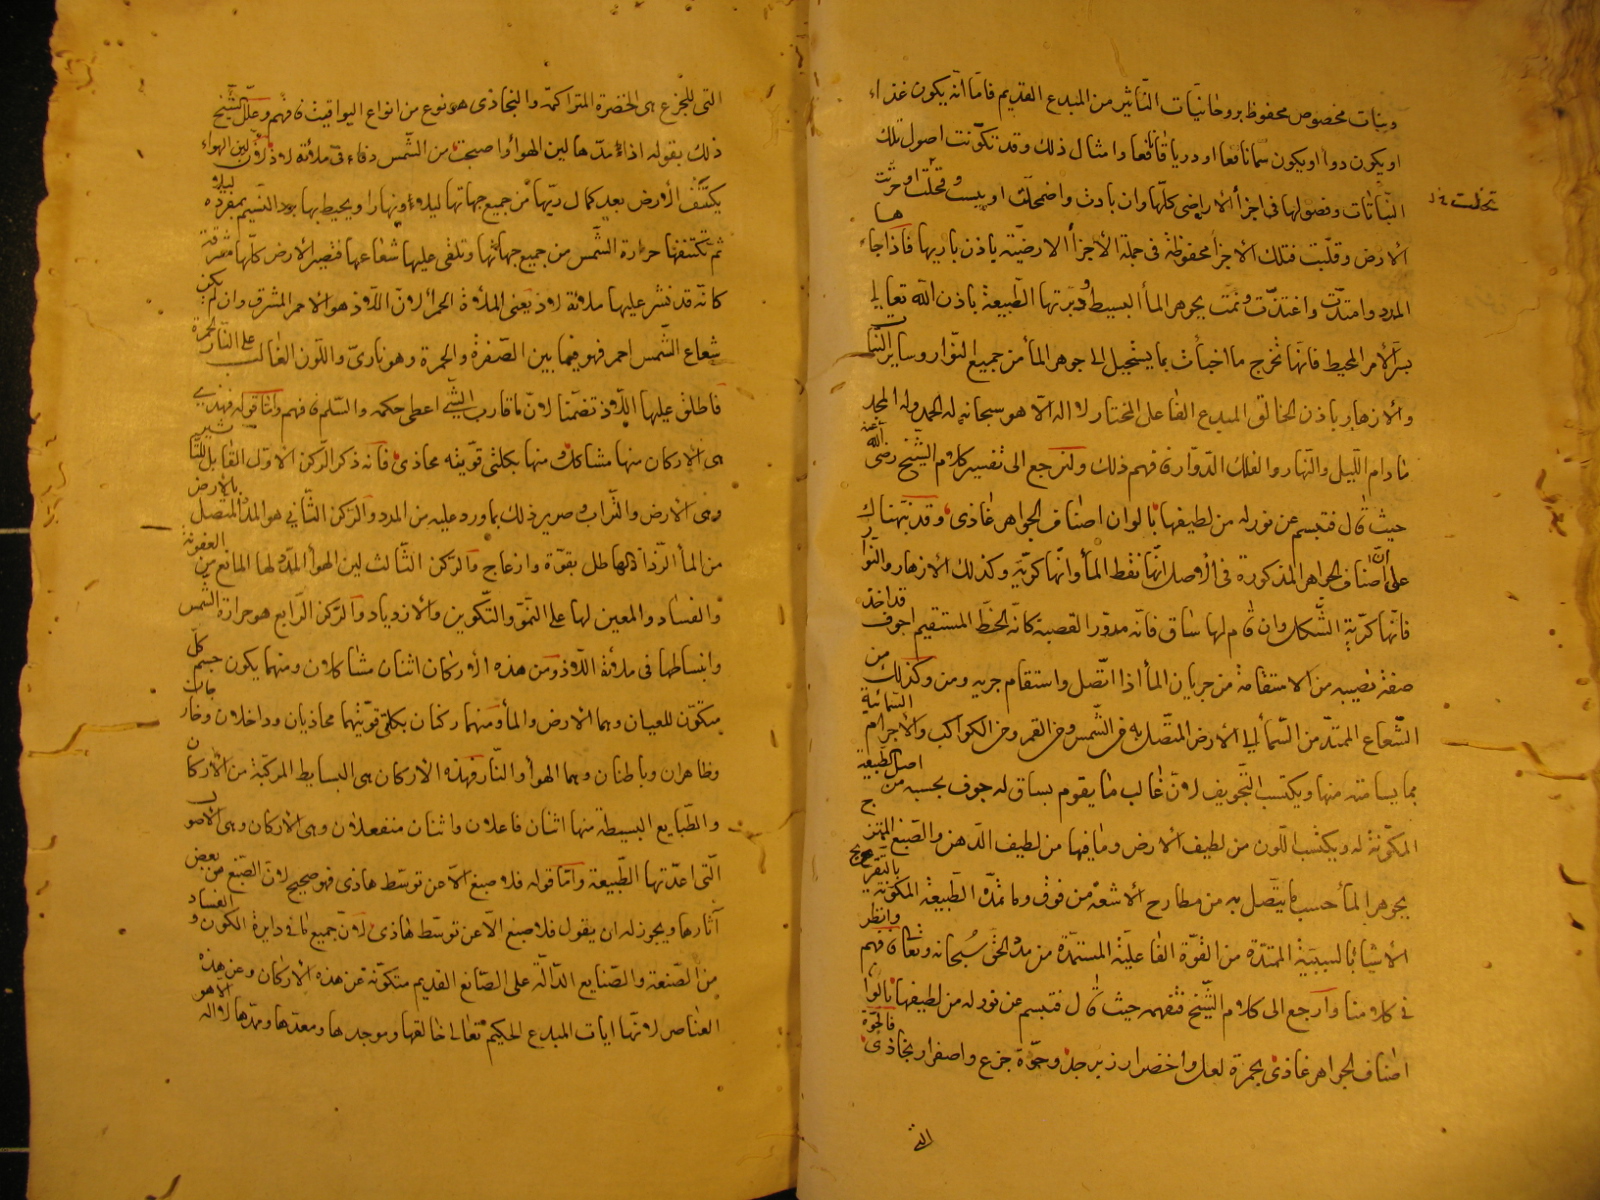 ونبات مخصوص محفوظ بروحانيات التأثير من المبدع القديم فاما انه يكون غذاء
او يكون دوا او يكون سما نافعا او درياقا نافعا وامثال ذلك وقد تكونت اصول تلك
النباتات وفصولها فى اجزأ الاراضى كلها وان بادت واضمحلت او يبست وتحللت او حرثت
الارض وقلبت فتلك الاجزأ محفوظة فى جملة الاجزأ الارضية باذن باريها فاذا جاءها
المدد وامتدت واغتذت ونمت بجوهر المأ البسيط ودبرتها الطبيعة باذن الله تعالى
بسر الامر المحيط فانها تخرج ما اخبأت بما يستحيل الى جوهر المأ من جميع النوار وساير النبات
والازهار باذن الخالق المبدع الفاعل المختار لا اله الا هو سبحانه له الحمد وله المجد
مادام الليل والنهار والفلك الدوار فهم ذلك ولنرجع الى تفسير كلام الشيخ رضى الله عنه
حيث قال فتبسم عن نور له من لطيفها بالوان اصناف الجواهر غاذى وقد نبهناك
على ان اصناف الجواهر المذكورة فى الاصل انها نقط المأ وانها كرية وكذلك الازهار والنوار
فانها كرية الشكل وان قام لها ساق فانه مدور القصبة كانه الخط المستقيم اجوف قد اخذ
صفة نصيبه من الاستقامة من جريان المأ اذا اتصل واستقام جريه ومن وكذلك من
الشعاع الممتد من السمأ الى الارض المتصل به فى الشمس وفى القمر وفى الكواكب والاجرام السمائية
بما يسامته منها ويكتسب التجويف لان غالب ما يقوم بساق له جوف بحسبه من اصل الطبيعة
المكونة له ويكتسب اللون من لطيف الارض وما فيها من لطيف الدهن والصبغ الممتزج
بجوهر المأ حسب ما يتصل به من مطارح الاشعة من فوق وما تمده الطبيعة المكونة بالتفريج
الاشيا بالسببية الممتدة من القوة الفاعلية المستمدة من مدد الحق سبحانه وتعالى فهم وانظر
فى كلامنا وارجع الى كلام الشيخ تفهمه حيث قال فتبسم عن نور له من لطيفها بالوان
اصناف الجواهر غاذى بحمرة لعل واخضرار زبرجد وحوة جزع واصفرار بجاذى فالحوة
التى
التى للجزع هى الخضرة المتراكمة والبجاذى هو نوع من انواع اليواقيت فهم وعلل الشيخ
ذلك بقوله اذا مدها لين الهوأ واصبحت من الشمس دفاء فى ملائة لاذ لان لين الهواء
يكتنف الارض بعد كمال ريها من جميع جهاتها ليلا ونهارا ويحيط بها برد النسيم بمفرده ليلا
ثم تكتنفها حرارة الشمس من جميع جهاتها وتلقى عليها شعاعها فتصير الارض كلها مشرقة
كانه قد نشر عليها ملائة لاذ يعنى الملاءة الحمرأ لان اللاذ هو الاحمر المشرق وان لم يكن
شعاع الشمس احمر فهو فيما بين الصفرة والحمرة وهو نارى واللون الغالب على النار الحمرة
فاطلق عليها اللاذ تضمنا لان ما قارب الشئ اعطى حكمه والسلم فهم واما قوله فهذى
هى الاركان منها مشاكل ومنها بكلتى قوتيه محاذى فانه ذكر الركن الاول القابل للتاثير
وهى الارض والتراب وصرير ذلك بما ورد عليه من المدد والركن الثانى هو المدد المتصل بالارض
من المأ الرذاذ لها طل بقوة وازعاج والركن الثالث لين الهوأ المدد لها المانع من العفونة
والفساد والمعين لها على النمو والتكوين والازدياد والركن الرابع هو حرارة الشمس
وانبساطها فى ملائة اللاذ ومن هذه الاركان اثنان مشاكلان ومنهما يكون جسم كل
متكون للعيان وهما الارض والمأ ومنهما ركنان بكلتى قوتيهما محاذيان وداخلان وخارجان
وظاهران وباطنان وهما الهوأ والنار فهذه الاركان هى البسايط المركبة من الاركان
والطبايع البسيطة منها اثنان فاعلان واثنان منفعلان وهى الاركان وهى الاصول
التى اعدتها الطبيعة واما قوله فلا صبغ الا عن توسط هاذى فهو صحيح لان الصبغ من بعض
آثارها ويجوز له ان يقول فلا صبغ الا عن توسط هاذى لان جميع ما فى دايرة الكون والفساد
من الصنعة والصنايع الدالة على الصانع القديم متكونة عن هذه الاركان وعن هذه
العناصر لانها ايات المبدع الحكيم تعالى خالقها وموجدها ومعدها ومدها لا اله الا هو